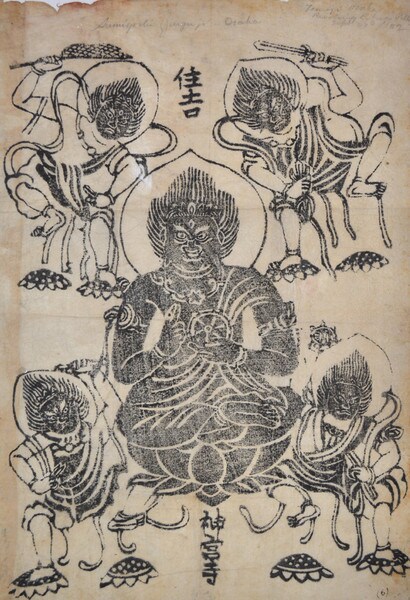 Sumiyoshi Jinguji - Osaka
住𠮷
神宮寺
(6)